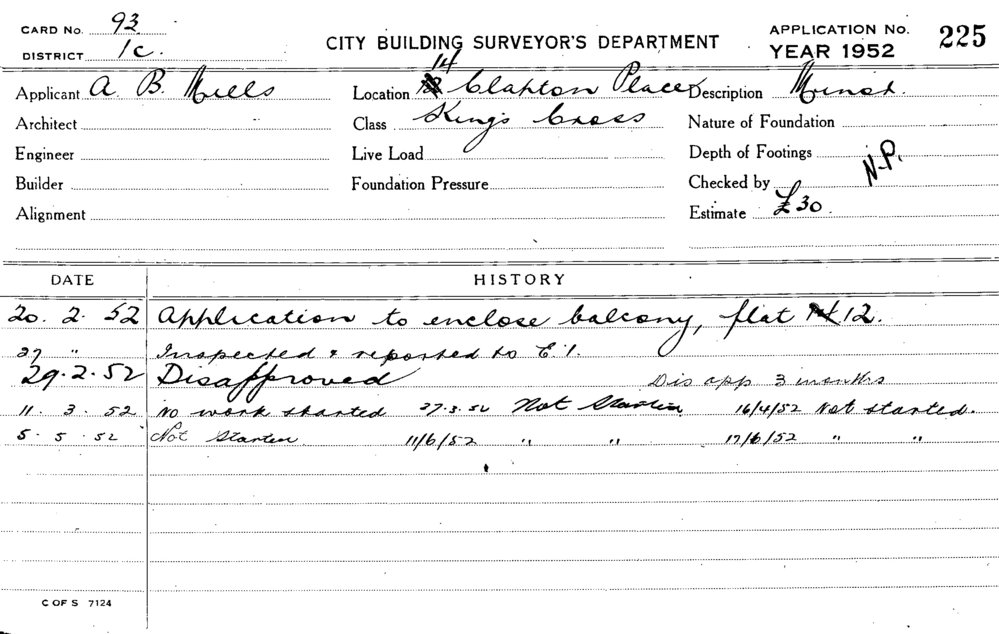 CARD No. 93
DISTRICT 1c.
CITY BUILDING SURVEYOR'S DEPARTMENT
APPLICATION No. 225
YEAR 1952
Applicant A. B. Mills
Location 14 Clapton Place
Description Minor.
Architect
Class Kings Cross
Nature of Foundation
Engineer
Live Load
Depth of Footings
N.P.
Builder
Foundation Pressure
Checked by
Alignment
Estimate £30.
DATE HISTORY
20. 2. 52 Application to enclose balcony, flat 12.
27 " Inspected & reported to E.I.
29.2.52 Disapproved Dis app 3 months
11. 3. 52 No work started 27.3.52 Not Started 16/4/52 Not started.
5. 5. 52 Not Started 11/6/52 " " 17/6/52 " "
C OF S 7124